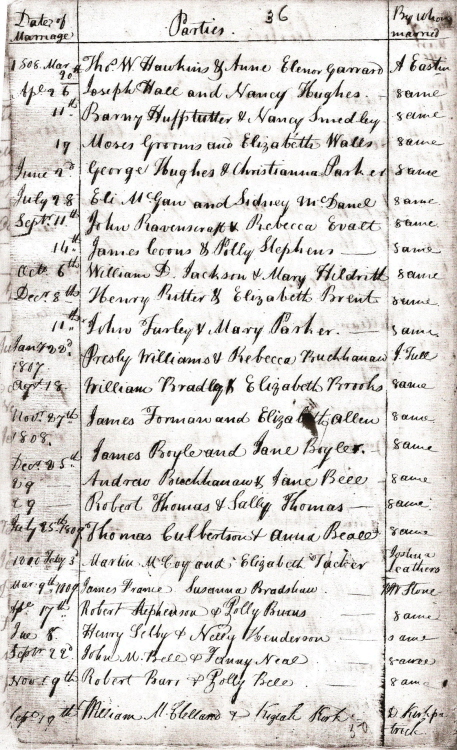 36
Date of Marriage Parties. By whom married
1808. Mar 20th Thos W Hawkins & Anne Elenor Garrard A Eastin
Apl 26 Joseph Hall and Nancy Hughes. same
11th Barny Hufftutter & Nancy Smedley same
19 Moses Grooms and Elizabeth Walls same
June 2d George Hughes & Christianna Parker same
July 28 Eli McGaw and Sidney McDanel same
Sept. 11th John Ravenscraft & Rebecca Evalt same
14th James Coons & Polly Stephens same
Octo. 6th William D. Jackson & Mary Hildritt same
Decr. 8th Henry Rutter & Elizabeth Brent same
11th John Turley & Mary Parker. same
Jany 22d 1807 Presly Williams & Rebecca Buchhanan J. Tull
18 William Bradley & Elizabeth Brooks same
Novr. 27th James Forman and Elizabeth Allen same
1808.
Decr. 25th James Boyle and Jane Boyler. same
29 Andrew Buchhanan & Jane Bell same
29 Robert Thomas & Sally Thomas same
July 25th 1809 Thomas Culbertson & Anna Beall same
1810 Feby 3 Martin McCoy and Elizabeth Tucker Joshua Leathers
Mar 9th 1809 James France Susanna Bradshaw Stone
17th Robert Stephenson & Polly Burns same
8 Henry Selby & Nelly Henderson same
Septr. 22d John M. Bell & Fanny Neal same
Nov. 9th Robert Barr & Polly Bell same
19th William McClelland & Kirk D Kirkpatrick